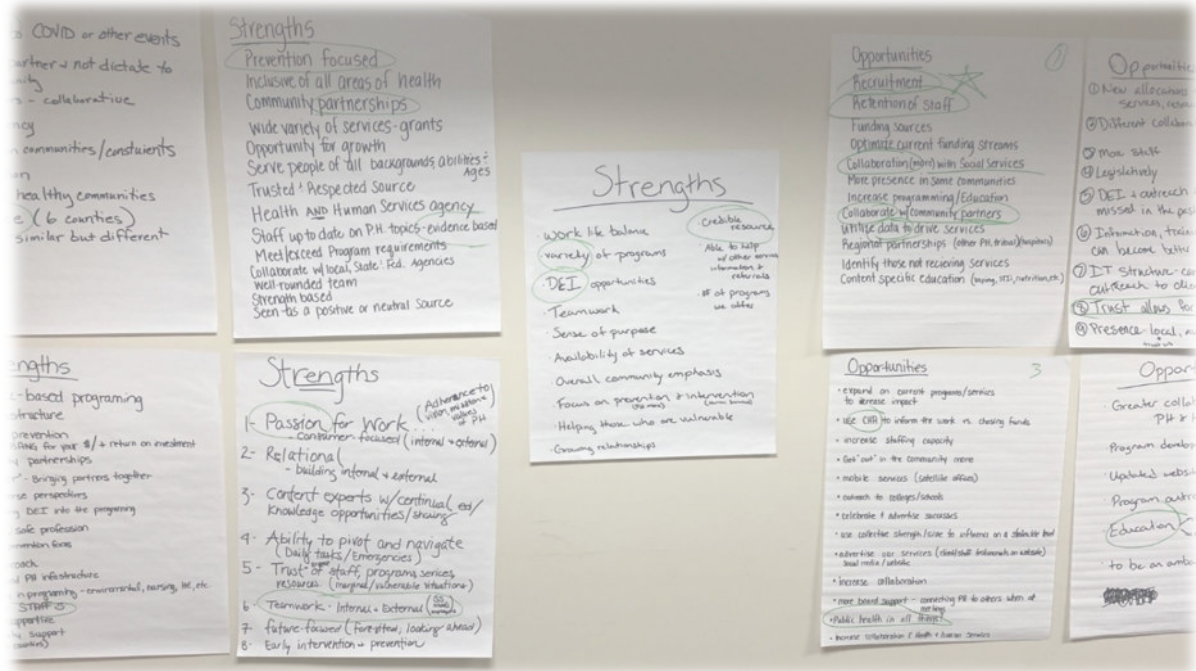 COVID or other events
not dictate to
- collaborative
communities/constuients
healthy communities
(6 counties)
similar but different
Strengths
Prevention focused
Inclusive of all areas of health
Community partnerships
Wide variety of services - grants
Opportunity for growth
Serve people of all backgrounds, abilities +
Ages
Trusted + Respected Source
Health AND Human Services agency
Staff up to date on P.H. topics - evidence based
Meet/exceed Program requirements
Collaborate w/ local, State + Fed. Agencies
Well-rounded team
Strength based
Seen as a positive or neutral source
Strengths
· Work life balance
· variety of programs
· DEI opportunities
· Teamwork
· Sense of purpose
· Availability of services
· Overall community emphasis
· Focus on prevention + intervention
· Helping those who are vulnerable
· Growing relationships
· credible
resource
· Able to help
w/ other
information +
referrals
· # of programs
we offer
Opportunities
1
Recruitment
Retention of staff
Funding sources
Optimize current funding streams
Collaboration (more) with Social Services
More presence in some communities
Increase programming/Education
Collaborate w/community partners
Utilize data to drive services
Regional partnerships (other PH, tribal)(hospitals)
Identify those not recieving services
Content specific education (vaping, STI, nutrition, etc.)
① New allocations
services,
② Different
③ More staff
④ Legislatively
⑤ DEI + outreach
missed in the
⑥ Information,
can become
⑦ IT Structure -
outreach to
⑧ Trust allows
⑨ Presence - local,
- based programing
prevention
for your $/+ return on investment
partnerships
- Bringing partners together
perspectives
DEI into the programing
safe profession
PH infestructure
programing - environmental, nursing, etc.
STAFF
support
Strengths
1- Passion for Work...
(Adherence to
vision, missions
values
of PH
- consumer focused (internal + external)
2- Relational
- building internal + external
3- Content experts w/continual ed/
Knowledge opportunities/sharing
4- Ability to pivot and navigate
(Daily tasks/Emergencies)
5- Trust of staff, programs, serices,
resources (marginal/vulnerable situations)
6- Teamwork - Internal + External
7- future-focused (forefited, looking ahead)
8- Early intervention + prevention
Opportunities
3
· expand on current programs/services
to increase impact
· USE CHA to inform the work vs. chasing funds
· increase staffing capacity
· Get "out" in the community more
· mobile services (satellite offices)
· outreach to colleges/schools
· celebrate + advertise successes
· use collective strength/size to influence on a statewide level
· advertise our services (client/staff testimonials on website)
social media/website
· increase collaboration
· more board support - connecting PH to others when at
· Public health in all things!
· Increase collaboration c Health + Human Services
· Greater
PH +
Program
· Updated
· Program
Education
· to be an